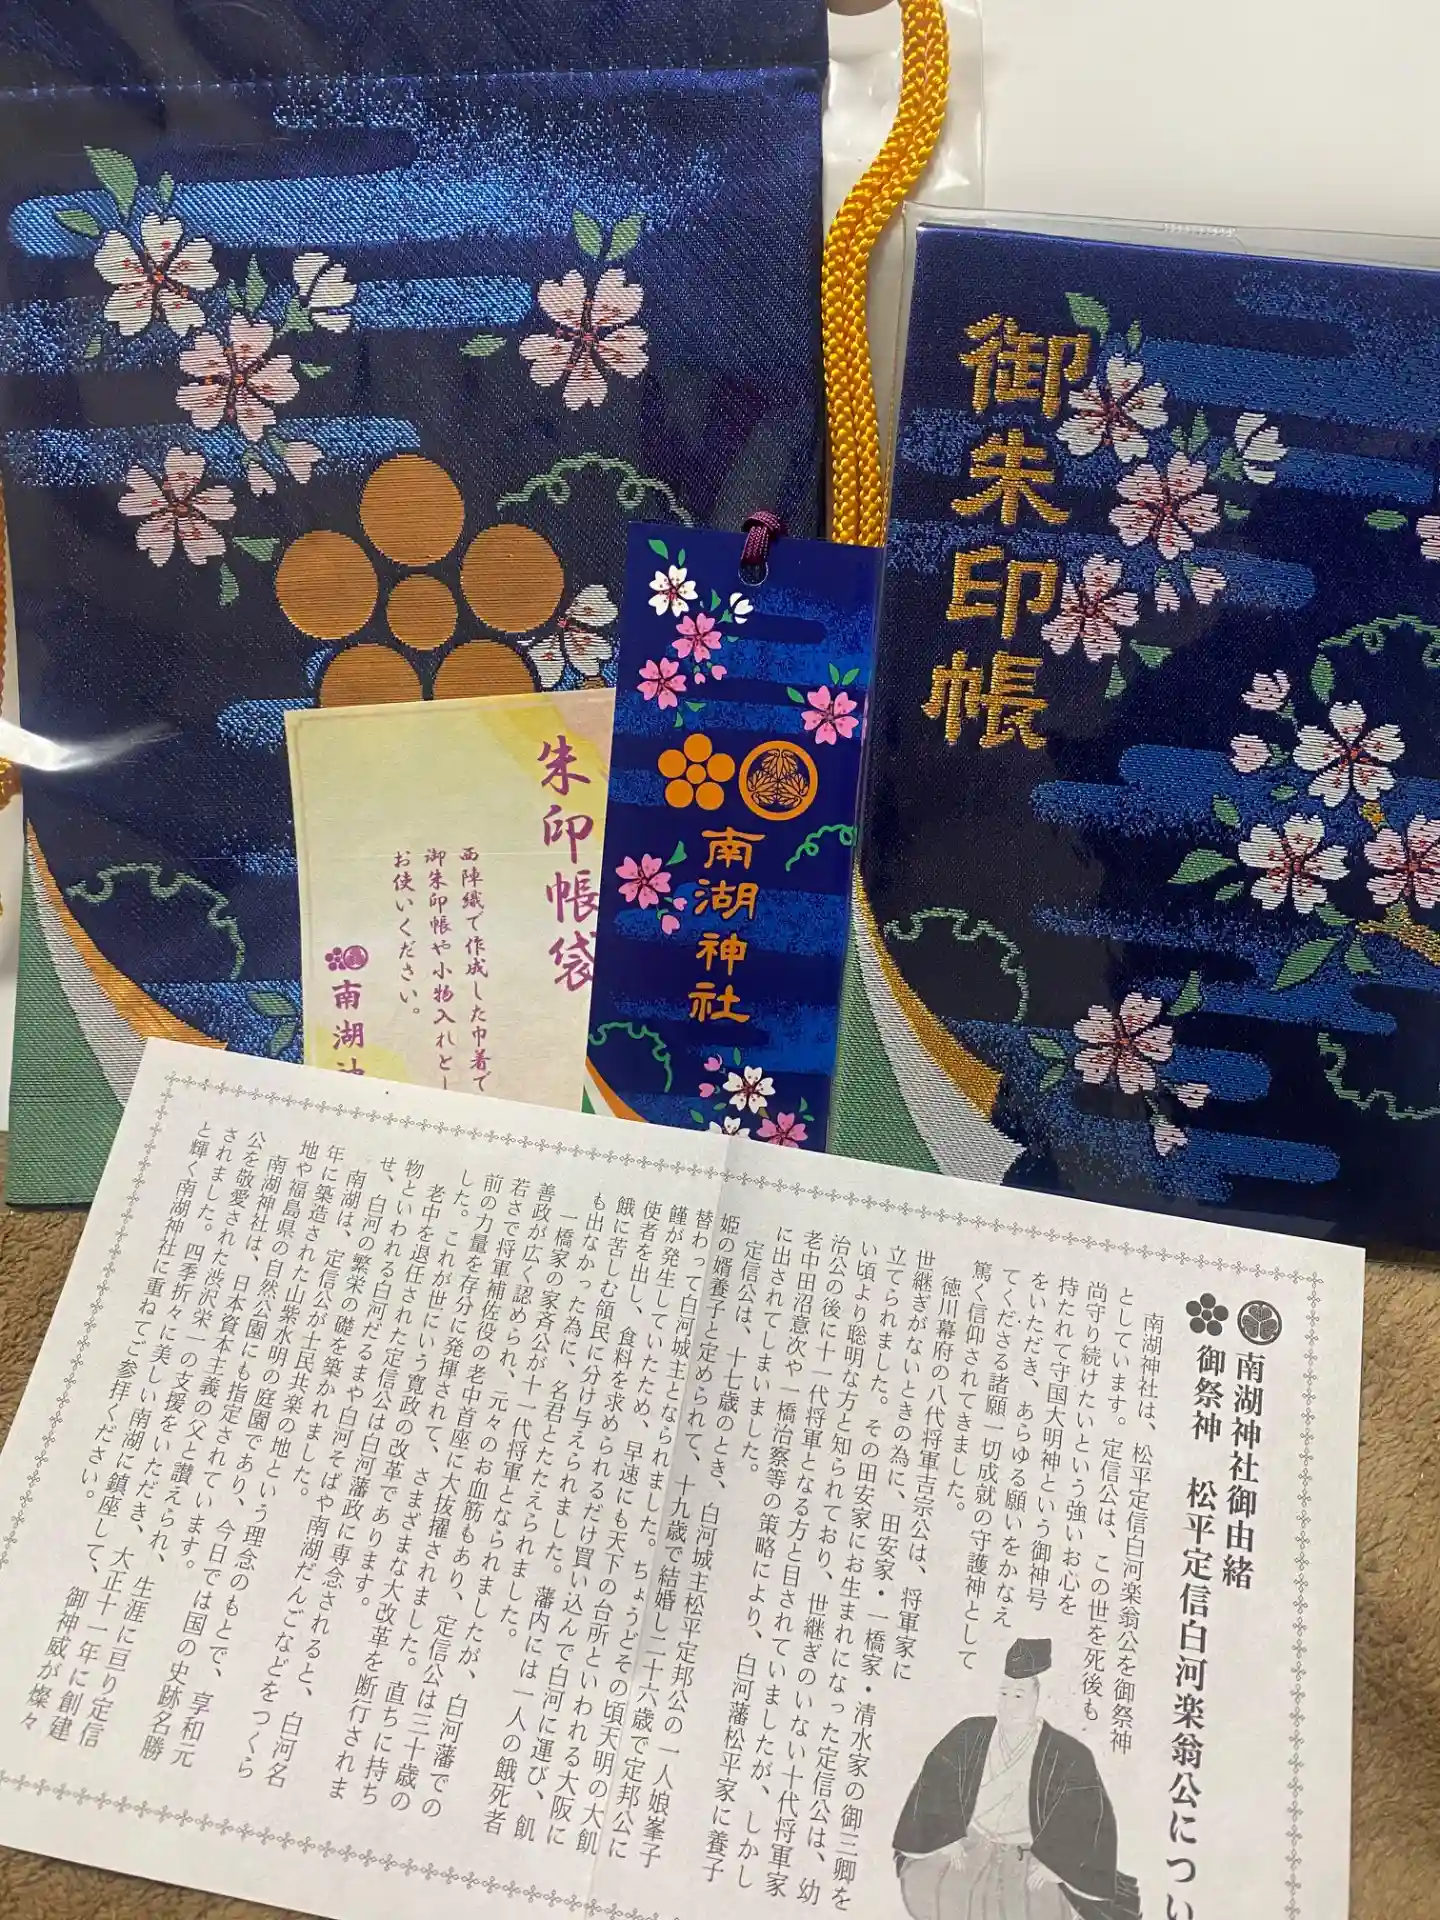 御朱印帳
南湖神社
朱印帳袋
西陣織で作成した巾着で
御朱印帳や小物入れとし
お使いください。
南湖神
南湖神社御由緒
御祭神 松平定信白河楽翁公につい
南湖神社は、松平定信白河楽翁公を御祭神
としています。定信公は、この世を死後も
尚守り続けたいという強いお心を
持たれて守国大明神という御神号
をいただき、あらゆる願いをかなえ
てくださる諸願一切成就の守護神として
篤く信仰されてきました。
徳川幕府の八代将軍吉宗公は、将軍家に
世継ぎがないときの為に、田安家・一橋家・清水家の御三卿を
立てられました。その田安家にお生まれになった定信公は、幼
い頃より聡明な方と知られており、世継ぎのいない十代将軍家
治公の後に十一代将軍となる方と目されていましたが、しかし
老中田沼意次や一橋治察等の策略により、白河藩松平家に養子
に出されてしまいました。
定信公は、十七歳のとき、白河城主松平定邦公の一人娘峯子
姫の婿養子と定められて、十九歳で結婚し二十六歳で定邦公に
替わって白河城主となられました。ちょうどその頃天明の大飢
饉が発生していたため、早速にも天下の台所といわれる大阪に
使者を出し、食料を求められるだけ買い込んで白河に運び、飢
餓に苦しむ領民に分け与えられました。藩内には一人の餓死者
も出なかった為に、名君とたたえられました。
一橋家の家斉公が十一代将軍となられましたが、白河藩での
善政が広く認められ、元々のお血筋もあり、定信公は三十歳の
若さで将軍補佐役の老中首座に大抜擢されました。直ちに持ち
前の力量を存分に発揮されて、さまざまな大改革を断行されま
した。これが世にいう寛政の改革であります。
老中を退任された定信公は白河藩政に専念されると、白河名
物といわれる白河だるまや白河そばや南湖だんごなどをつくら
せ、白河の繁栄の礎を築かれました。
南湖は、定信公が士民共楽の地という理念のもとで、享和元
年に築造された山紫水明の庭園であり、今日では国の史跡名勝
地や福島県の自然公園にも指定されています。
南湖神社は、日本資本主義の父と讃えられ、生涯に亘り定信
公を敬愛された渋沢栄一の支援をいただき、大正十一年に創建
されました。四季折々に美しい南湖に鎮座して、御神威が燦々
と輝く南湖神社に重ねてご参拝ください。